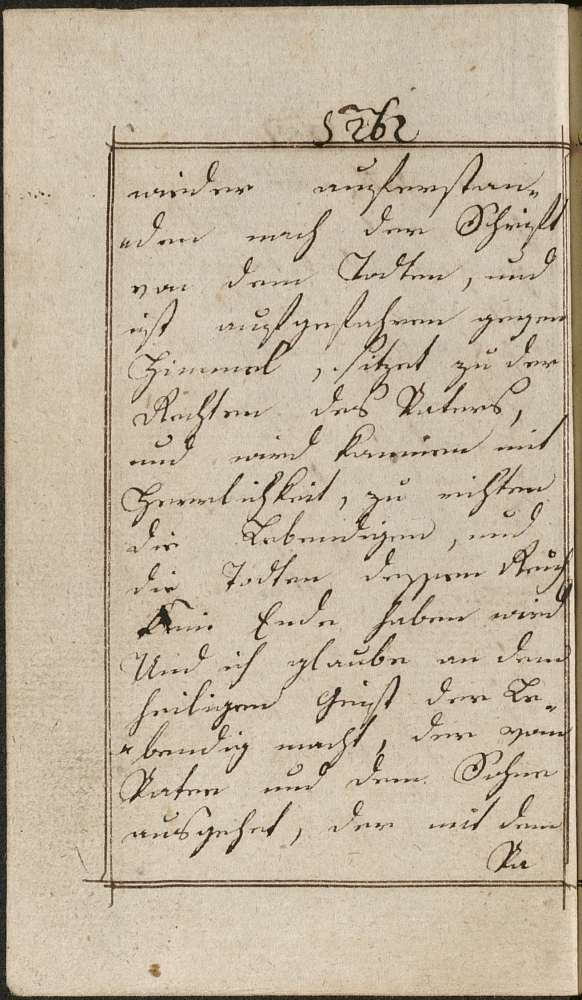 262
wieder auferstan„
„den nach der Schrift
von dem Todten, und
ist aufgefahren gegen
Himmel, sitzet zu der
Rechten des Vaters,
und wird kommen mit
Herrlichkeit, zu richten
die Lebendigen, und
die Todten dessen Reich
kein Ende haben wird
Und ich glaube an den
heiligen Geist der Le„
„bendig macht, der vom
Vater und dem Sohne
ausgehet, der mit dem
Va